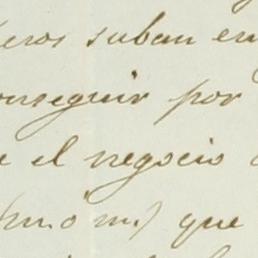 eros suban en
onseguir por
e el negocio
m. ó m.) que